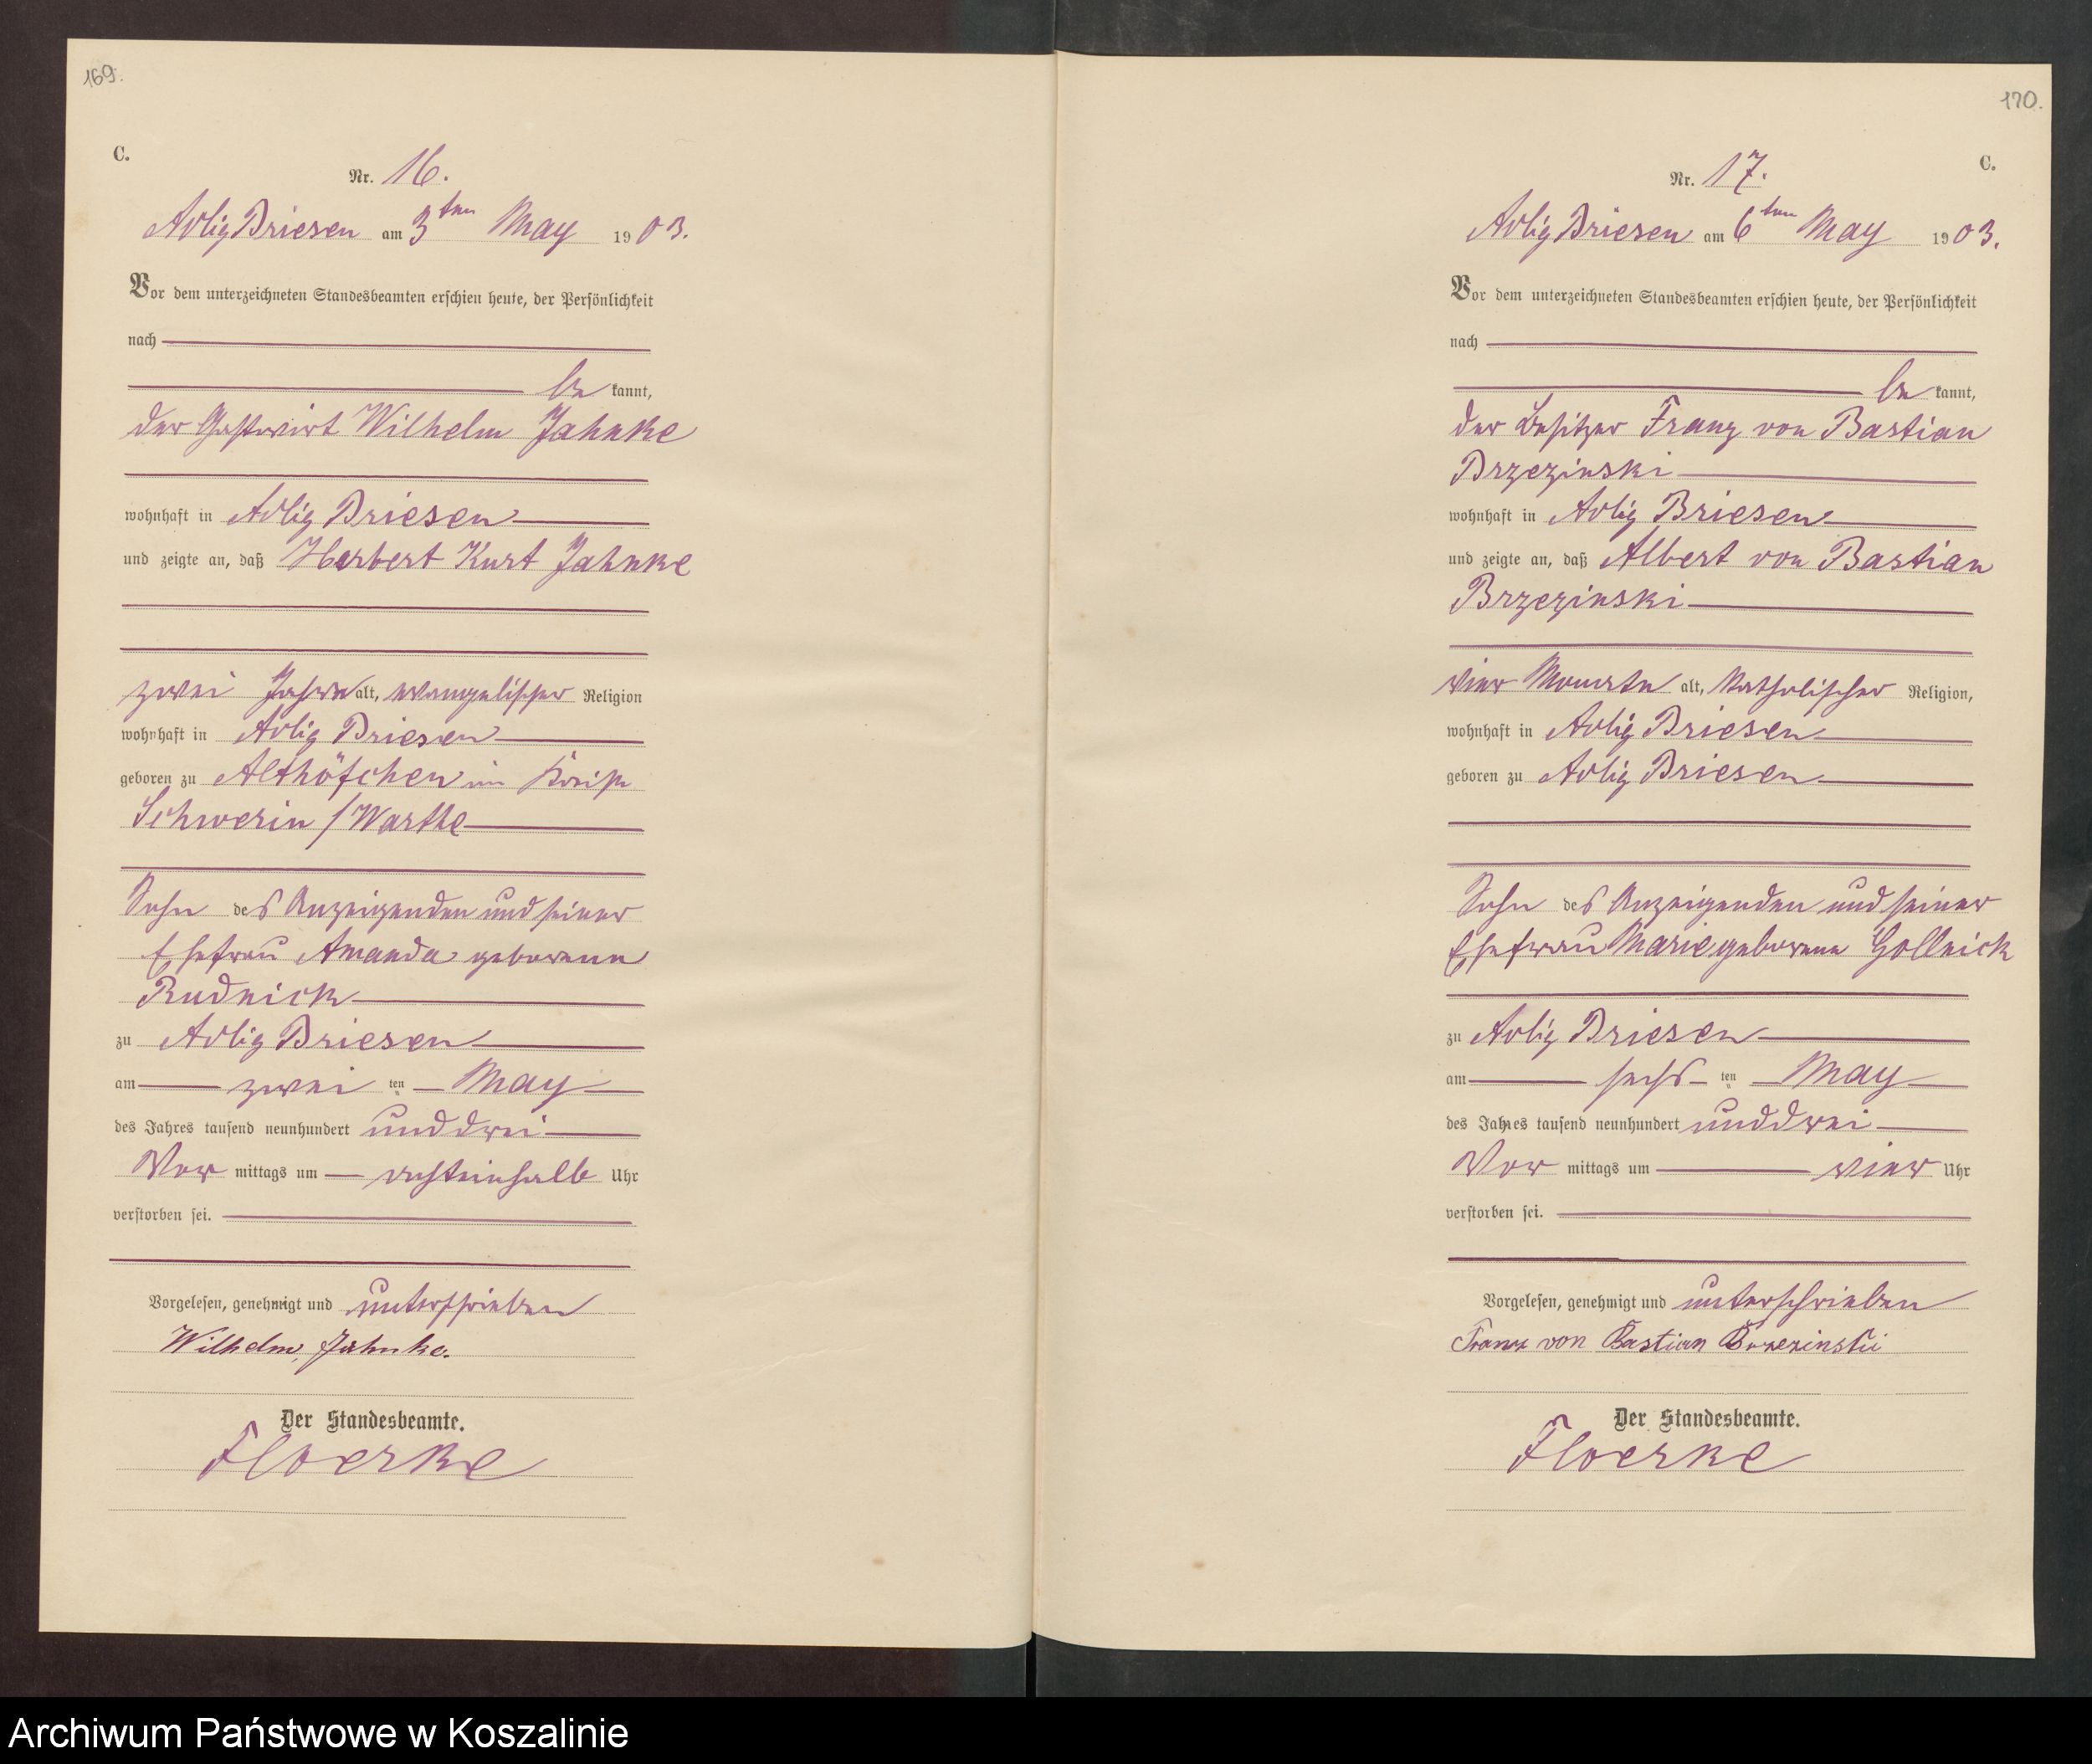 169.
C.
Nr. 16.
Adlig Briesen am 3ten May 1903.
Vor dem unterzeichneten Standesbeamten erschien heute, der Persönlichkeit
nach
be kannt,
der Gastwirt Wilhelm Jahnke
wohnhaft in Adlig Briesen
und zeigte an, daß Herbert Kurt Jahnke
zwei Jahre alt, evangelischer Religion
wohnhaft in Adlig Briesen
geboren zu Althöfchen im Kreise
Schwerin / Warthe
Sohn des Anzeigenden und seiner
Ehefrau Amanda geborene
Rudnick
zu Adlig Briesen
am zwei ten May
des Jahres tausend neunhundert und drei
Vor mittags um achteinhalb Uhr
verstorben sei.
Vorgelesen, genehmigt und unterschrieben
Wilhelm Jahnke.
Der Standesbeamte.
Floerke
170.
C.
Nr. 17.
Adlig Briesen am 6ten May 1903.
Vor dem unterzeichneten Standesbeamten erschien heute, der Persönlichkeit
nach
be kannt,
der Besitzer Franz von Bastian
Brzezinski
wohnhaft in Adlig Briesen
und zeigte an, daß Albert von Bastian
Brzezinski
vier Monate alt, katholischer Religion,
wohnhaft in Adlig Briesen
geboren zu Adlig Briesen
Sohn des Anzeigenden und seiner
Ehefrau Marie geborene Gollnick
zu Adlig Briesen
am sechs ten May
des Jahres tausend neunhundert und drei
Vor mittags um vier Uhr
verstorben sei.
Vorgelesen, genehmigt und unterschrieben
Franz von Bastian Brzezinski
Der Standesbeamte.
Floerke
Archiwum Państwowe w Koszalinie